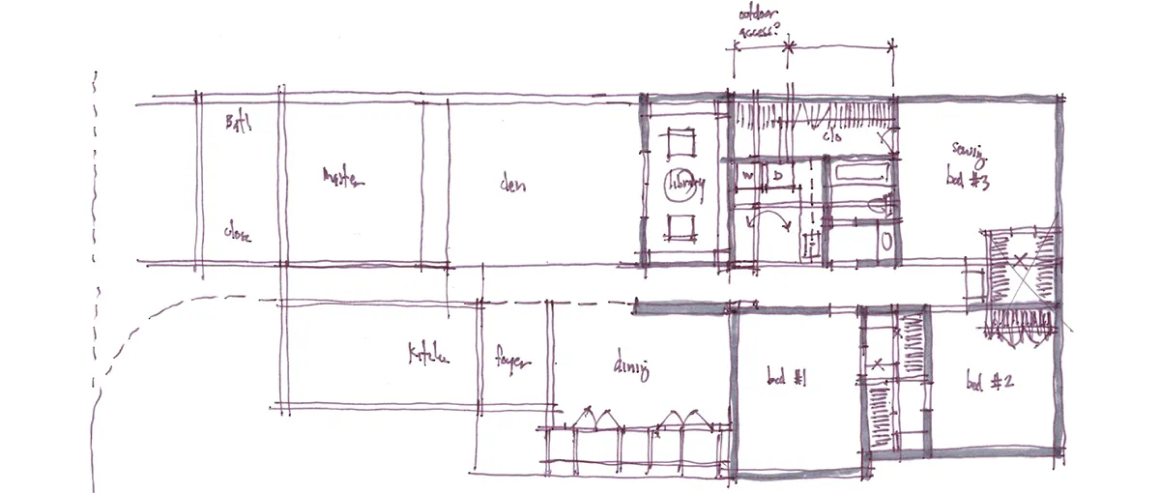 outdoor
access?
Bath
Master
den
library
clo
W D
sewing
bed #3
close
Kitchen
foyer
dining
bed #1
bed #2